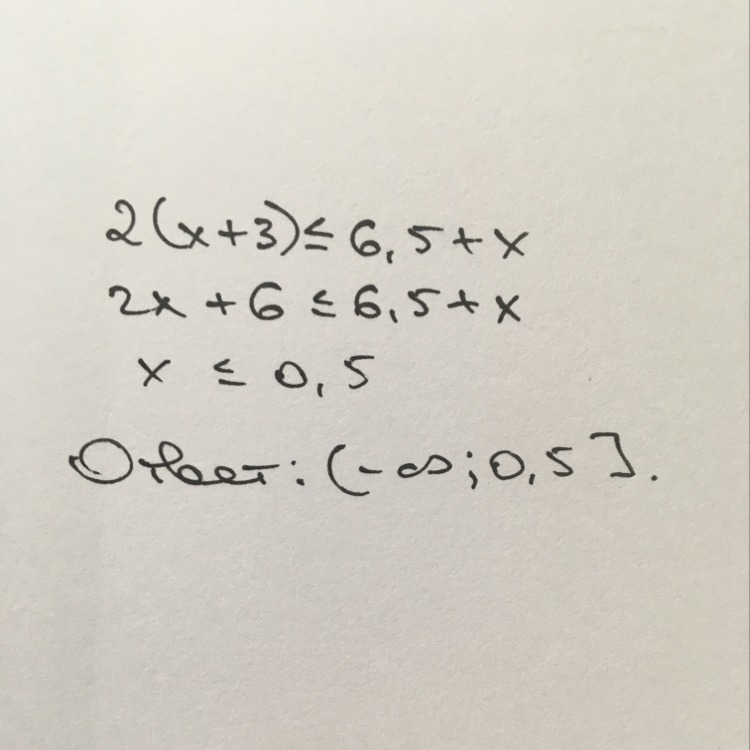 2(x+3)≤6,5+x
2x+6≤6,5+x
x ≤ 0,5
Ответ: (-∞;0,5].